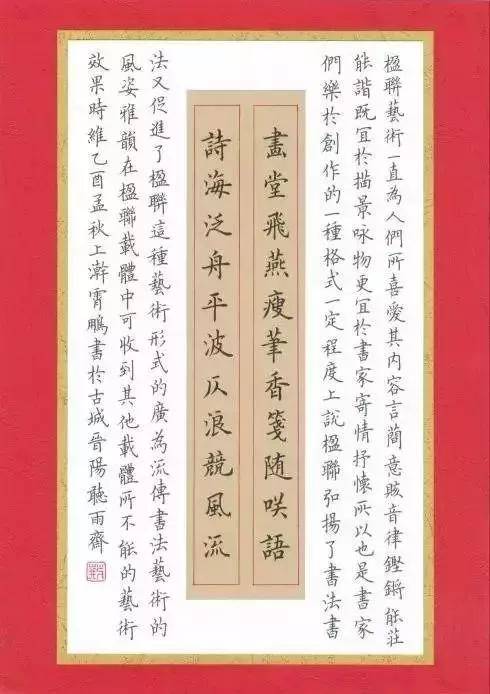 楹聯藝術一直為人們所喜愛其內容言簡意賅音律鏗鏘能莊
能諧既宜於描景咏物更宜於書家寄情抒懷所以也是書家
們樂於創作的一種格式一定程度上說楹聯弘揚了書法書
畫堂飛燕瘦筆香箋随咲語
詩海泛舟平波仄浪競風流
法又促進了楹聯這種藝術形式的廣為流傳書法藝術的
風姿雅韻在楹聯載體中可收到其他載體所不能的藝術
效果時維乙酉孟秋上澣霄鵬書於古城晉陽聽雨齋